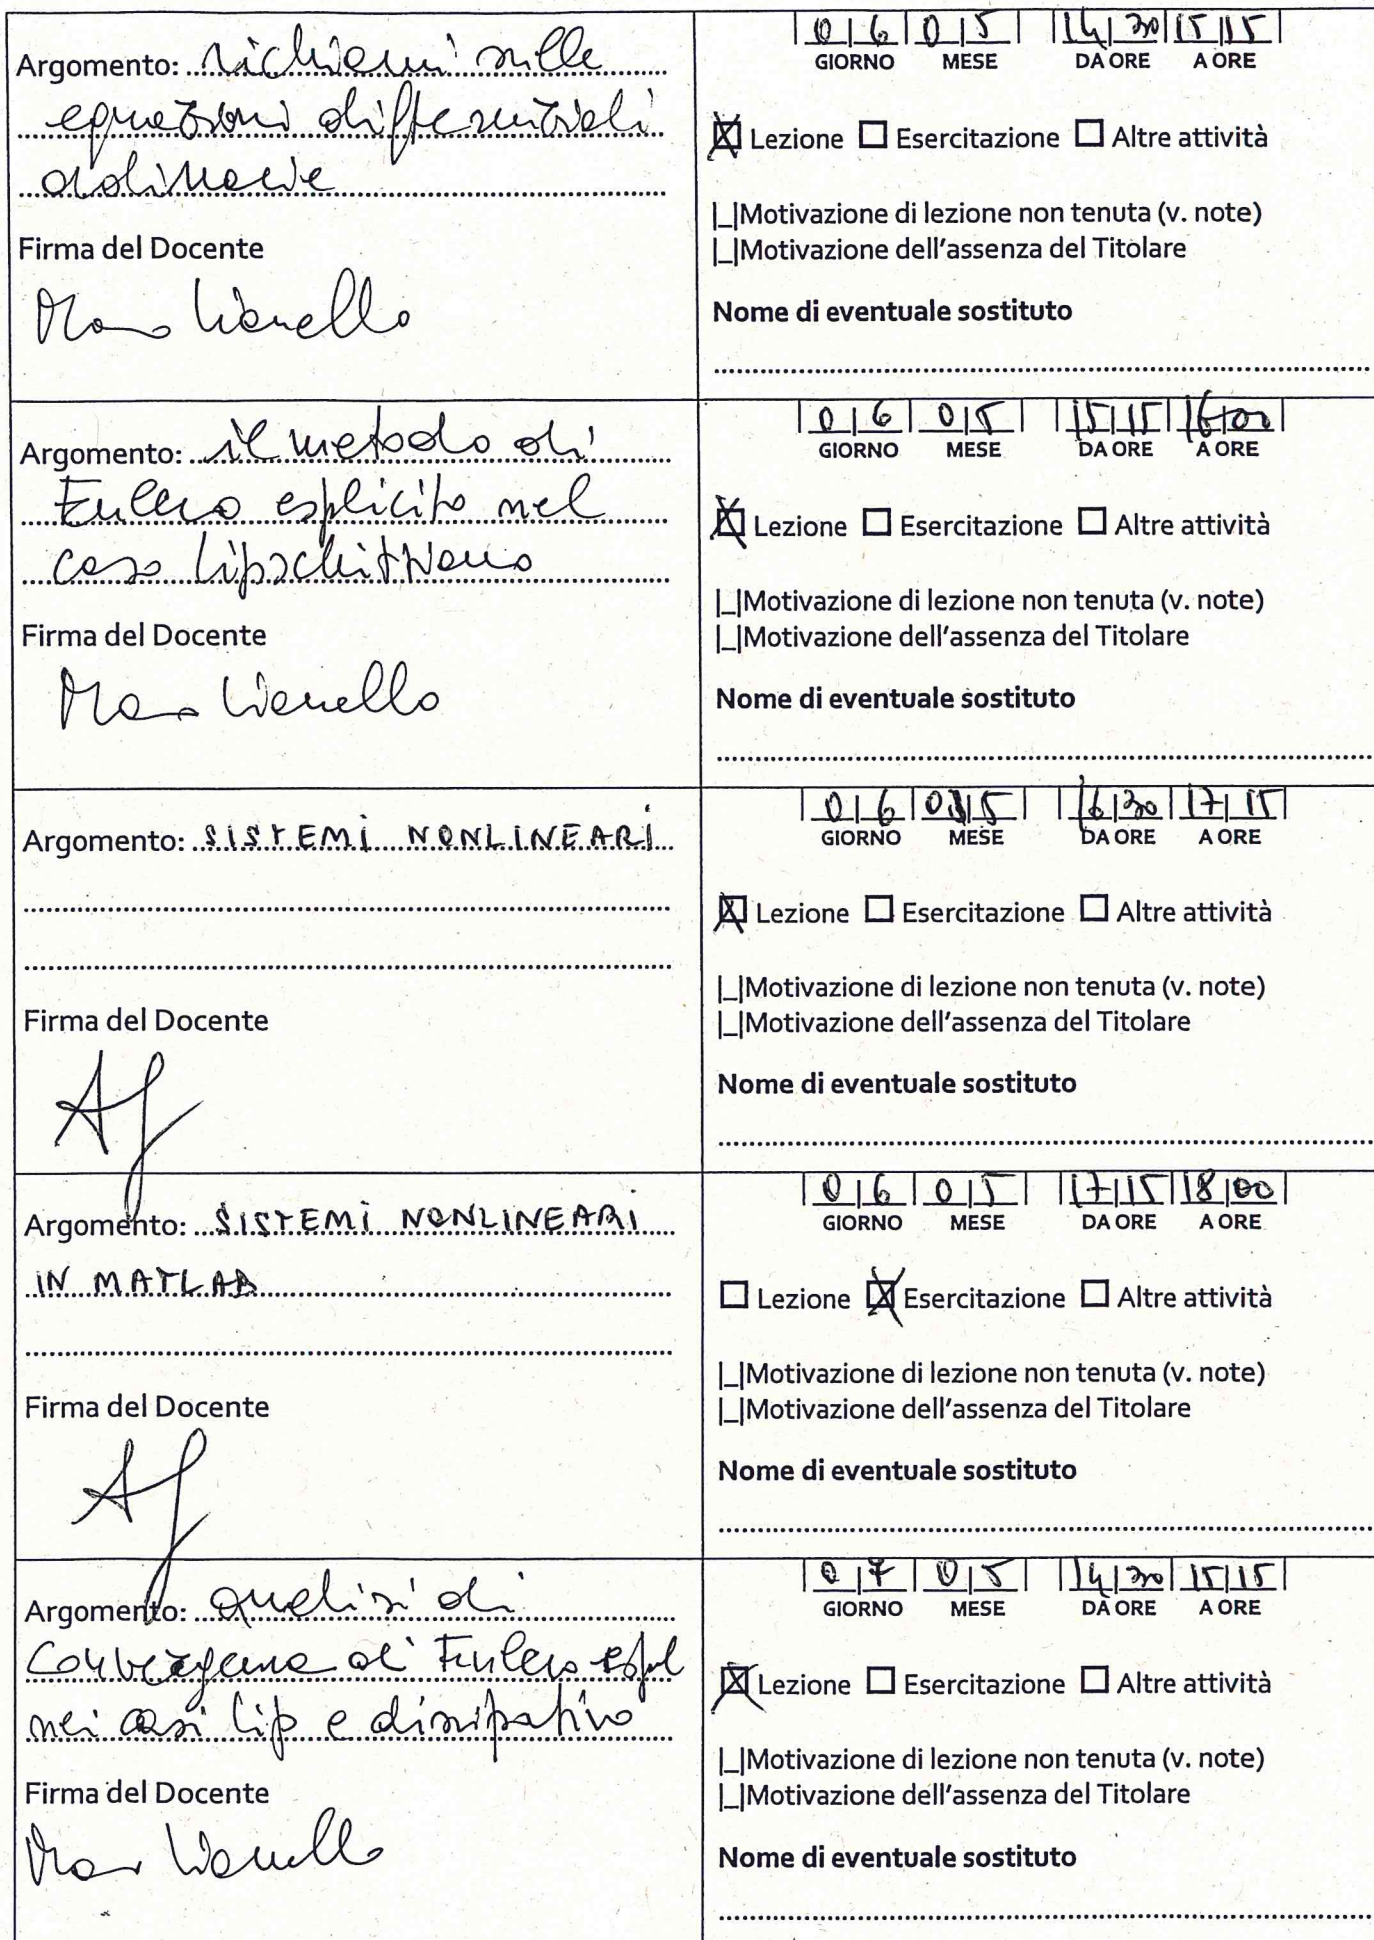 Argomento: richiami sulle
equazioni differenziali
ordinarie
Firma del Docente
Marco Vianello
|0|6| |0|5| |14|30| |15|15|
GIORNO MESE DA ORE A ORE
☒ Lezione ☐ Esercitazione ☐ Altre attività
|_|Motivazione di lezione non tenuta (v. note)
|_|Motivazione dell'assenza del Titolare
Nome di eventuale sostituto
Argomento: il metodo di
Eulero esplicito nel
caso lipschitziano
Firma del Docente
Marco Vianello
|0|6| |0|5| |15|15| |16|00|
GIORNO MESE DA ORE A ORE
☒ Lezione ☐ Esercitazione ☐ Altre attività
|_|Motivazione di lezione non tenuta (v. note)
|_|Motivazione dell'assenza del Titolare
Nome di eventuale sostituto
Argomento: SISTEMI NONLINEARI
Firma del Docente
|0|6| |0|5| |16|30| |17|15|
GIORNO MESE DA ORE A ORE
☒ Lezione ☐ Esercitazione ☐ Altre attività
|_|Motivazione di lezione non tenuta (v. note)
|_|Motivazione dell'assenza del Titolare
Nome di eventuale sostituto
Argomento: SISTEMI NONLINEARI
IN MATLAB
Firma del Docente
|0|6| |0|5| |17|15| |18|00|
GIORNO MESE DA ORE A ORE
☐ Lezione ☒ Esercitazione ☐ Altre attività
|_|Motivazione di lezione non tenuta (v. note)
|_|Motivazione dell'assenza del Titolare
Nome di eventuale sostituto
Argomento: analisi di
convergenza di Eulero espl
nei casi lip e dissipativo
Firma del Docente
Marco Vianello
|0|7| |0|5| |14|30| |15|15|
GIORNO MESE DA ORE A ORE
☒ Lezione ☐ Esercitazione ☐ Altre attività
|_|Motivazione di lezione non tenuta (v. note)
|_|Motivazione dell'assenza del Titolare
Nome di eventuale sostituto